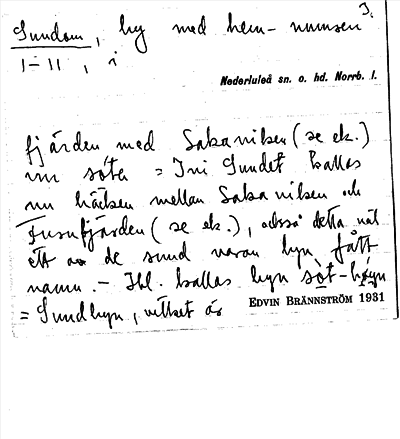 3.
Sundom, by med hem- numren
1-11, i
Nederluleå sn. o. hd. Norrb. l.
fjärden med Sakaviken (se ek.)
nu söter = I ni Sundet kallas
nu bäcken mellan Sakaviken och
Furufjärden (se ek.), också detta nät
ett av de sund varav byn fått
namn. - Ibl. kallas byn söt-bÿyn
= Sundbyn, vilket är
EDVIN BRÄNNSTRÖM 1931